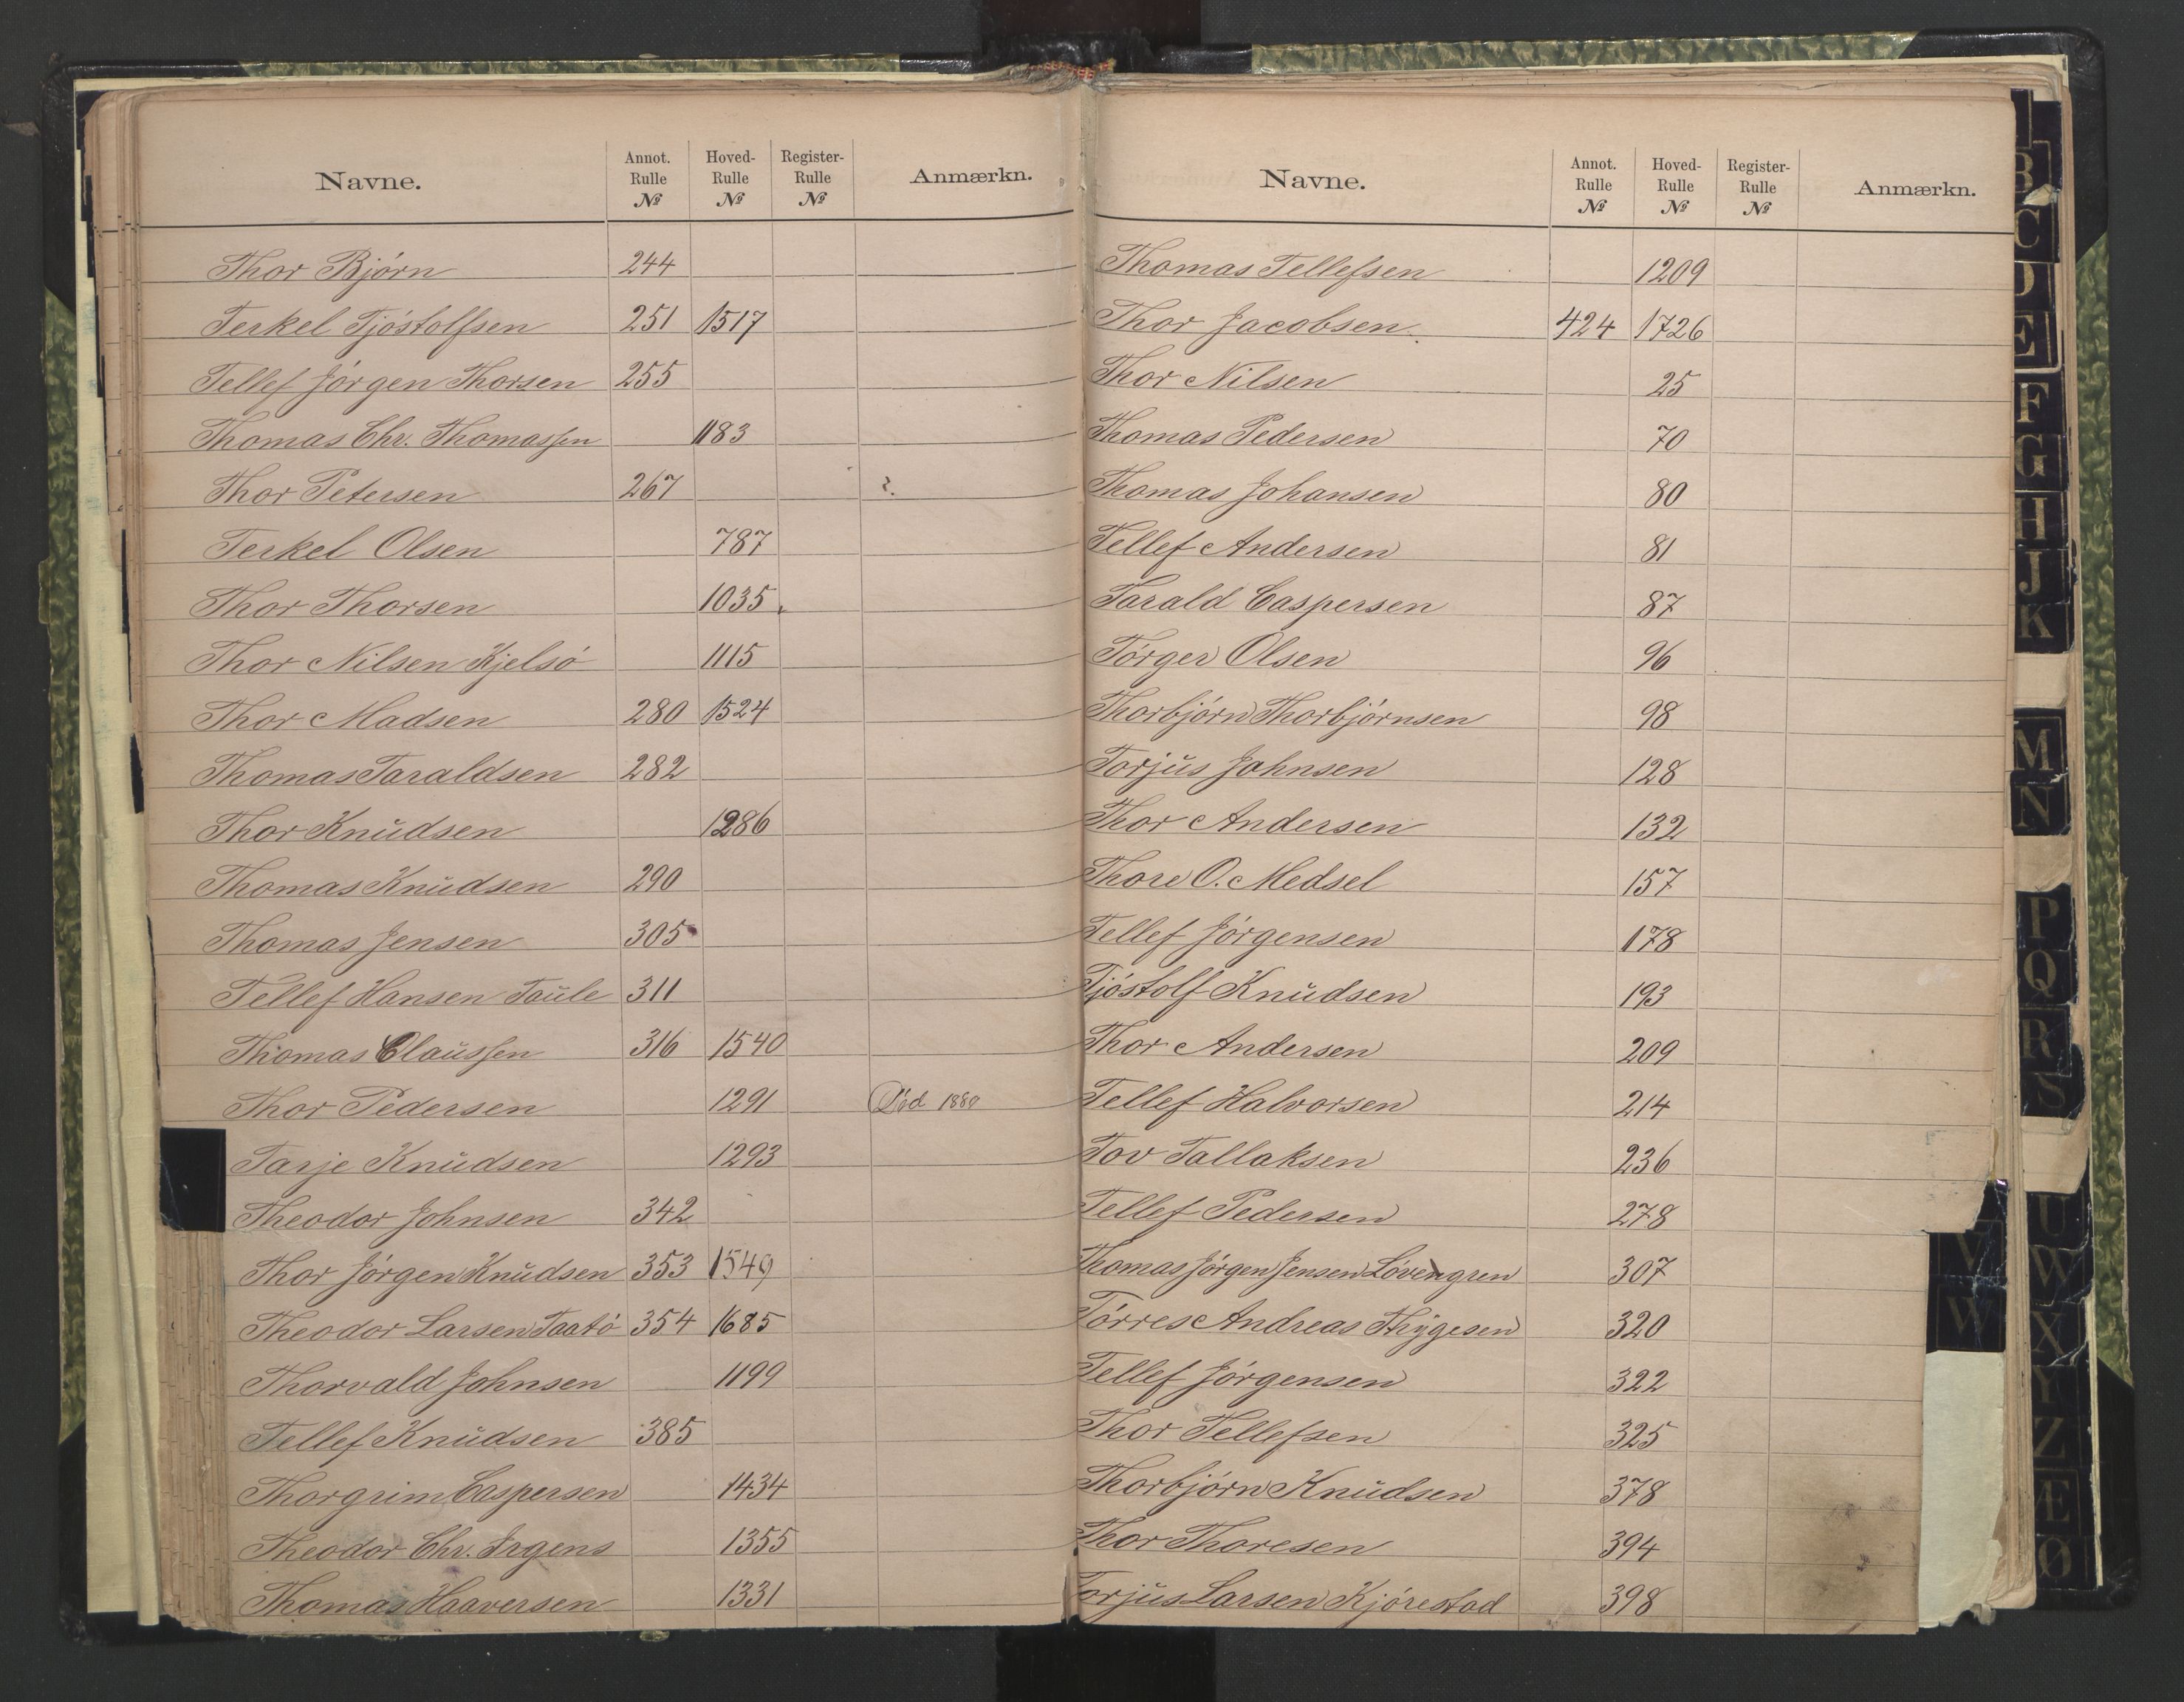 Navne. Annot. Rulle № Hoved- Rulle № Register- Rulle № Anmærkn.
Thor Bjørn 244
Terkel Tjøstolfsen 251 1517
Tellef Jørgen Thorsen 255
Thomas Chr. Thomassen 1183
Thor Petersen 267
Terkel Olsen 787
Thor Thorsen 1035
Thor Nilsen Kjelsø 1115
Thor Madsen 280 1524
Thomas Taraldsen 282
Thor Knudsen 1286
Thomas Knudsen 290
Thomas Jensen 305
Tellef Hansen Taule 311
Thomas Claussen 316 1540
Thor Pedersen 1291 Død 1880
Tarje Knudsen 1293
Theodor Johnsen 342
Thor Jørgen Knudsen 353 1549
Theodor Larsen Taatø 354 1685
Thorvald Johnsen 1199
Tellef Knudsen 385
Thorgrim Caspersen 1434
Theodor Chr. Irgens 1355
Thomas Haaversen 1331
Navne. Annot. Rulle № Hoved- Rulle № Register- Rulle № Anmærkn.
Thomas Tellefsen 1209
Thor Jacobsen 424 1726
Thor Nilsen 25
Thomas Pedersen 70
Thomas Johansen 80
Tellef Andersen 81
Tarald Caspersen 87
Tørger Olsen 96
Thorbjørn Thorbjørnsen 98
Torjus Johnsen 128
Thor Andersen 132
Thore O. Medsel 157
Tellef Jørgensen 178
Tjøstolf Knudsen 193
Thor Andersen 209
Tellef Halvorsen 214
Tov Tallaksen 236
Tellef Pedersen 278
Thomas Jørgen Jensen Løvengren 307
Tørres Andreas Thygesen 320
Tellef Jørgensen 322
Thor Tellefsen 325
Thorbjørn Knudsen 378
Thor Thoresen 394
Torjus Larsen Kjørestad 398
B
C
D
E
F
G
H
J
K
M
N
P
Q
R
S
U
V
W
W
X
Y
Z
Æ
Ø